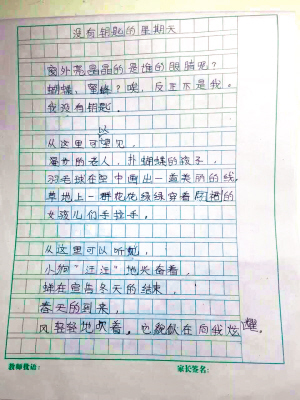 没有钥匙的星期天
窗外亮晶晶的是谁的眼睛呢？
蝴蝶、蜜蜂？唉，反正不是我。
我没有钥匙。
从这里可以望见，
的老人，扑蝴蝶的孩子，
羽毛球在空中画出一道美丽的线。
草地上一群花花绿绿穿着的
女孩儿们手拉手。
从这里可以听见，
小狗“汪汪”地兴奋着，
蝉在宣告冬天的结束，
春天的到来，
风轻轻地吹着，也貌似在向我炫耀。
教师批语：
家长签名：